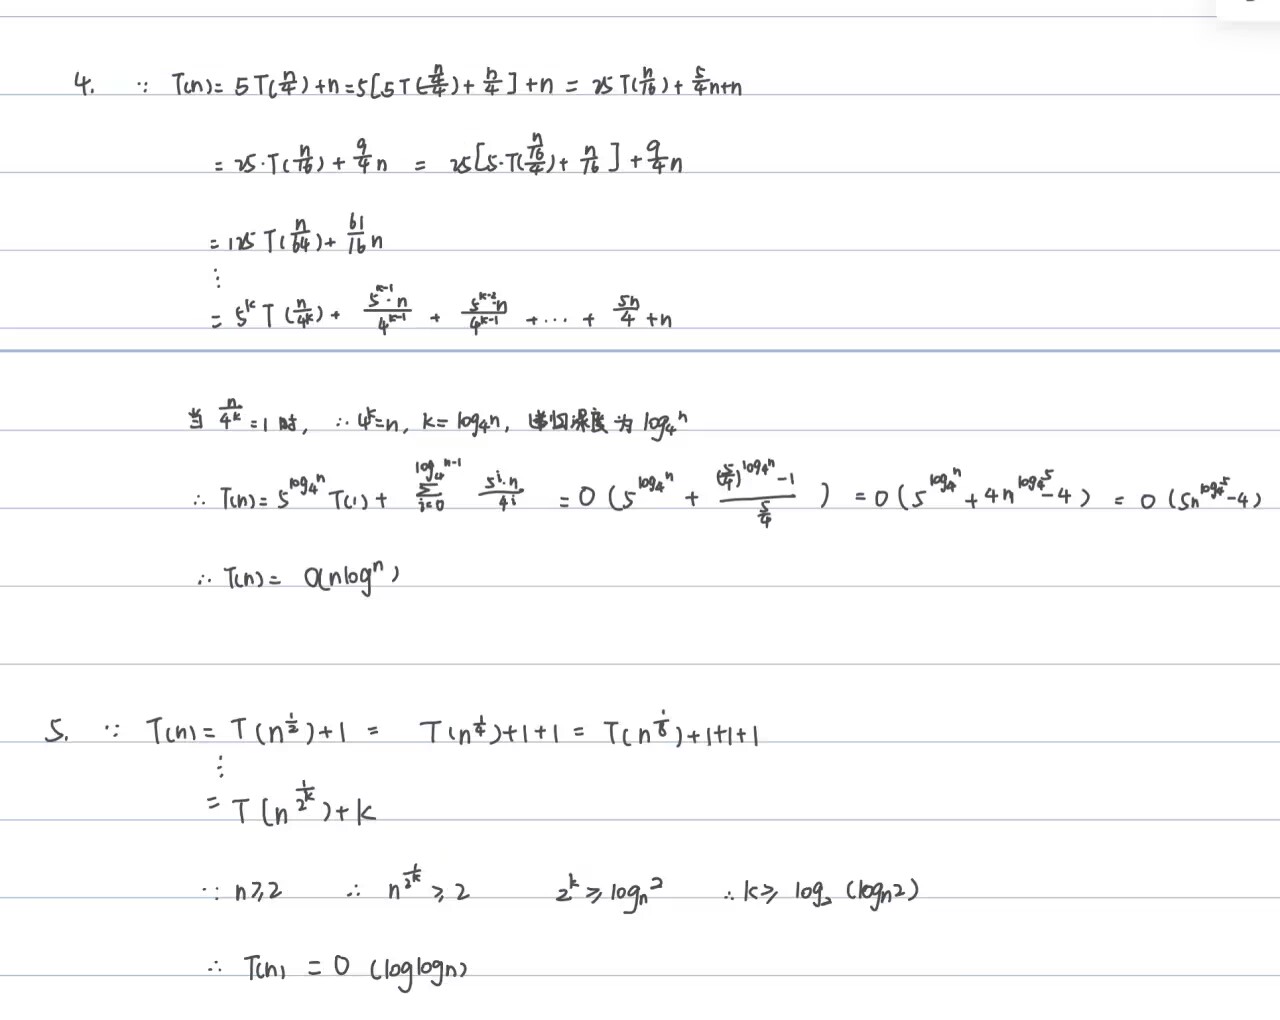 4. ∵ T(n)= 5T(n/4)+n=5[5T(n/4/4)+n/4]+n = 25T(n/16)+5/4n+n
= 25·T(n/16)+9/4n = 25[5·T(n/16/4)+n/16]+9/4n
= 125T(n/64)+61/16n
⋮
= 5^k T(n/4^k)+ 5^(k-1)·n/4^(k-1) + 5^(k-2)·n/4^(k-1) +⋯+ 5n/4 +n
当 n/4^k =1时, ∴ 4^k=n, k=log₄n, 递归深度为 log₄^n
∴ T(n)= 5^(log₄^n) T(1)+ ∑_(i=0)^(log₄^(n-1)) 5^i·n/4^i = O(5^(log₄^n) + ((5/4)^(log₄^n) -1)/(5/4)) = O(5^(log₄^n)+4n^(log₄^5)-4) = O(5n^(log₄^5)-4)
∴ T(n)= O(nlog^n)
5. ∵ T(n)= T(n^(1/2))+1 = T(n^(1/4))+1+1 = T(n^(1/8))+1+1+1
⋮
= T(n^(1/2^k))+k
∵ n≥2 ∴ n^(1/2^k)≥2 2^k≥logₙ2 ∴k≥ log₂(logₙ2)
∴ T(n) = O(loglogn)